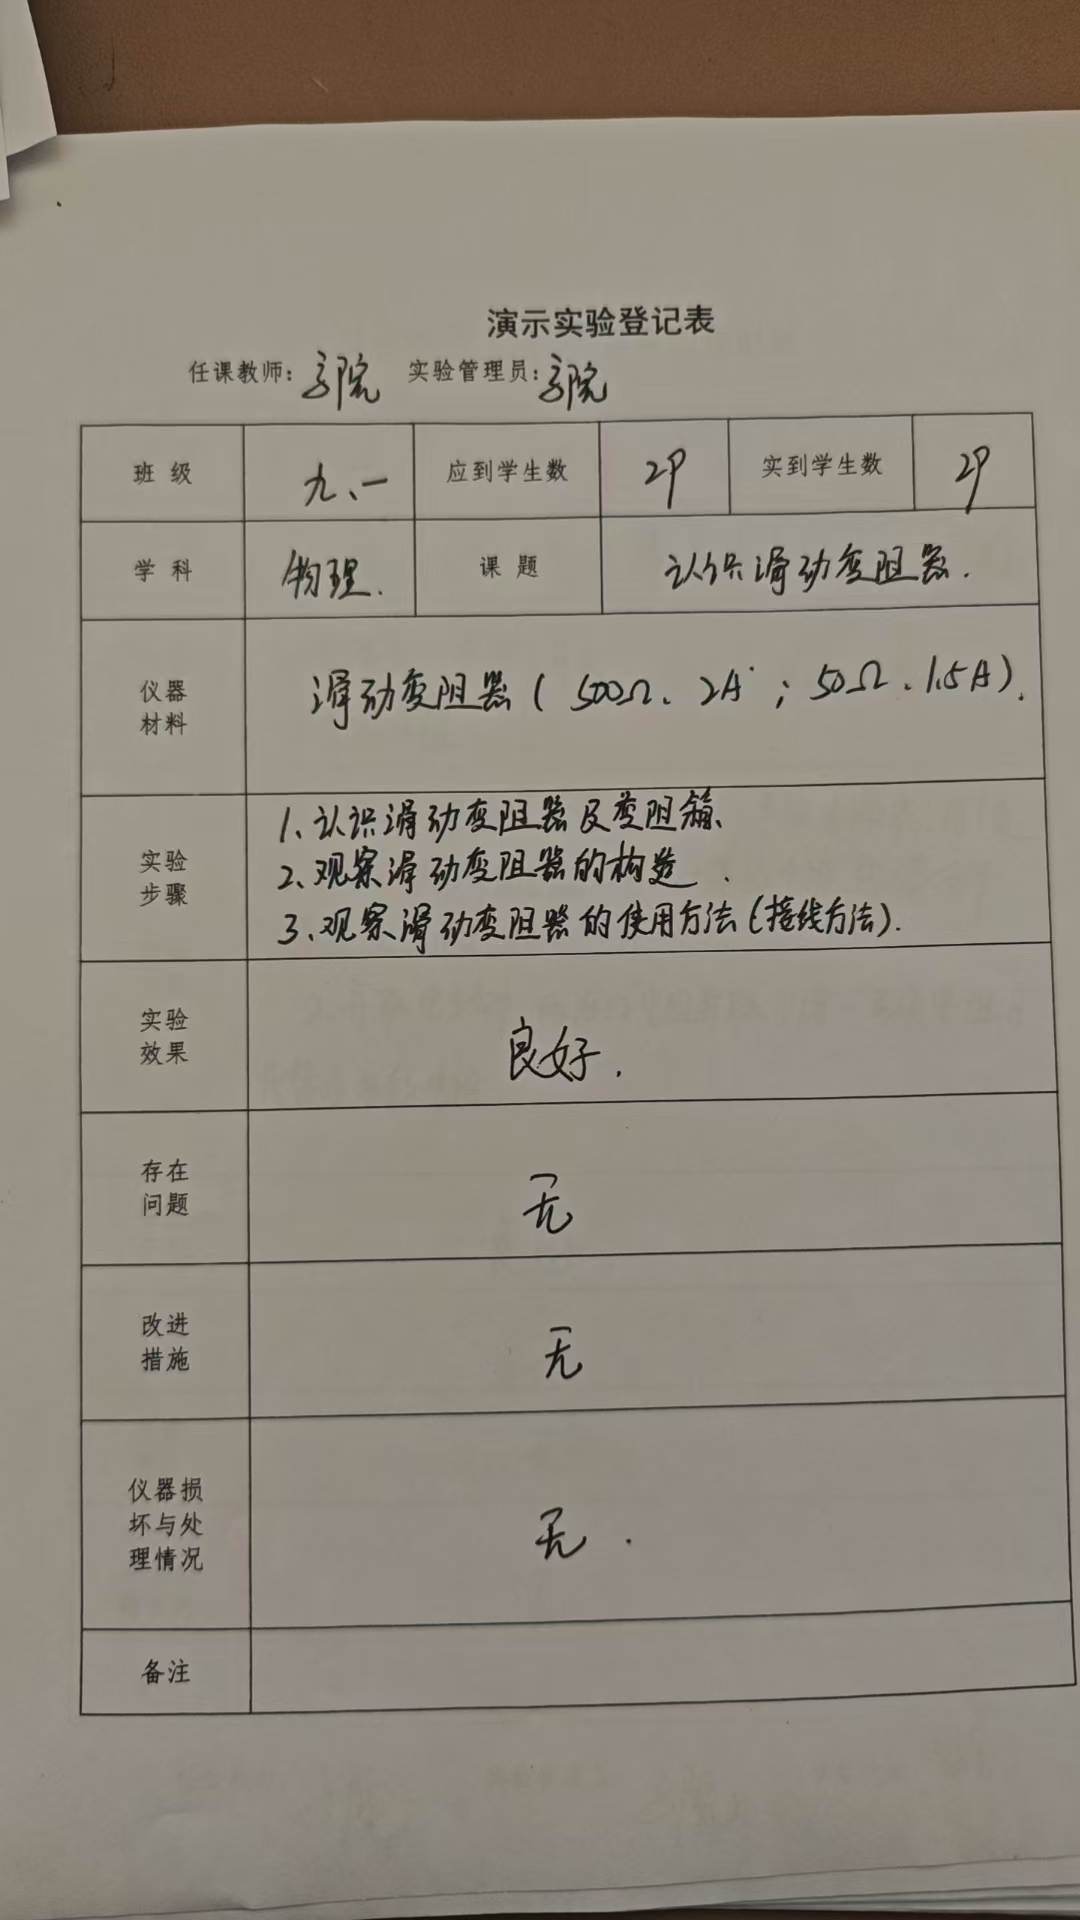 演示实验登记表
任课教师: 实验管理员:
班 级 九、一 应到学生数 29 实到学生数 29
学 科 物理. 课 题 认识滑动变阻器.
仪器
材料
滑动变阻器( 500Ω、2A ; 50Ω、1.5A).
实验
步骤
1、认识滑动变阻器及变阻箱、
2、观察滑动变阻器的构造.
3、观察滑动变阻器的使用方法(接线方法).
实验
效果
良好.
存在
问题
无
改进
措施
无
仪器损
坏与处
理情况
无.
备注